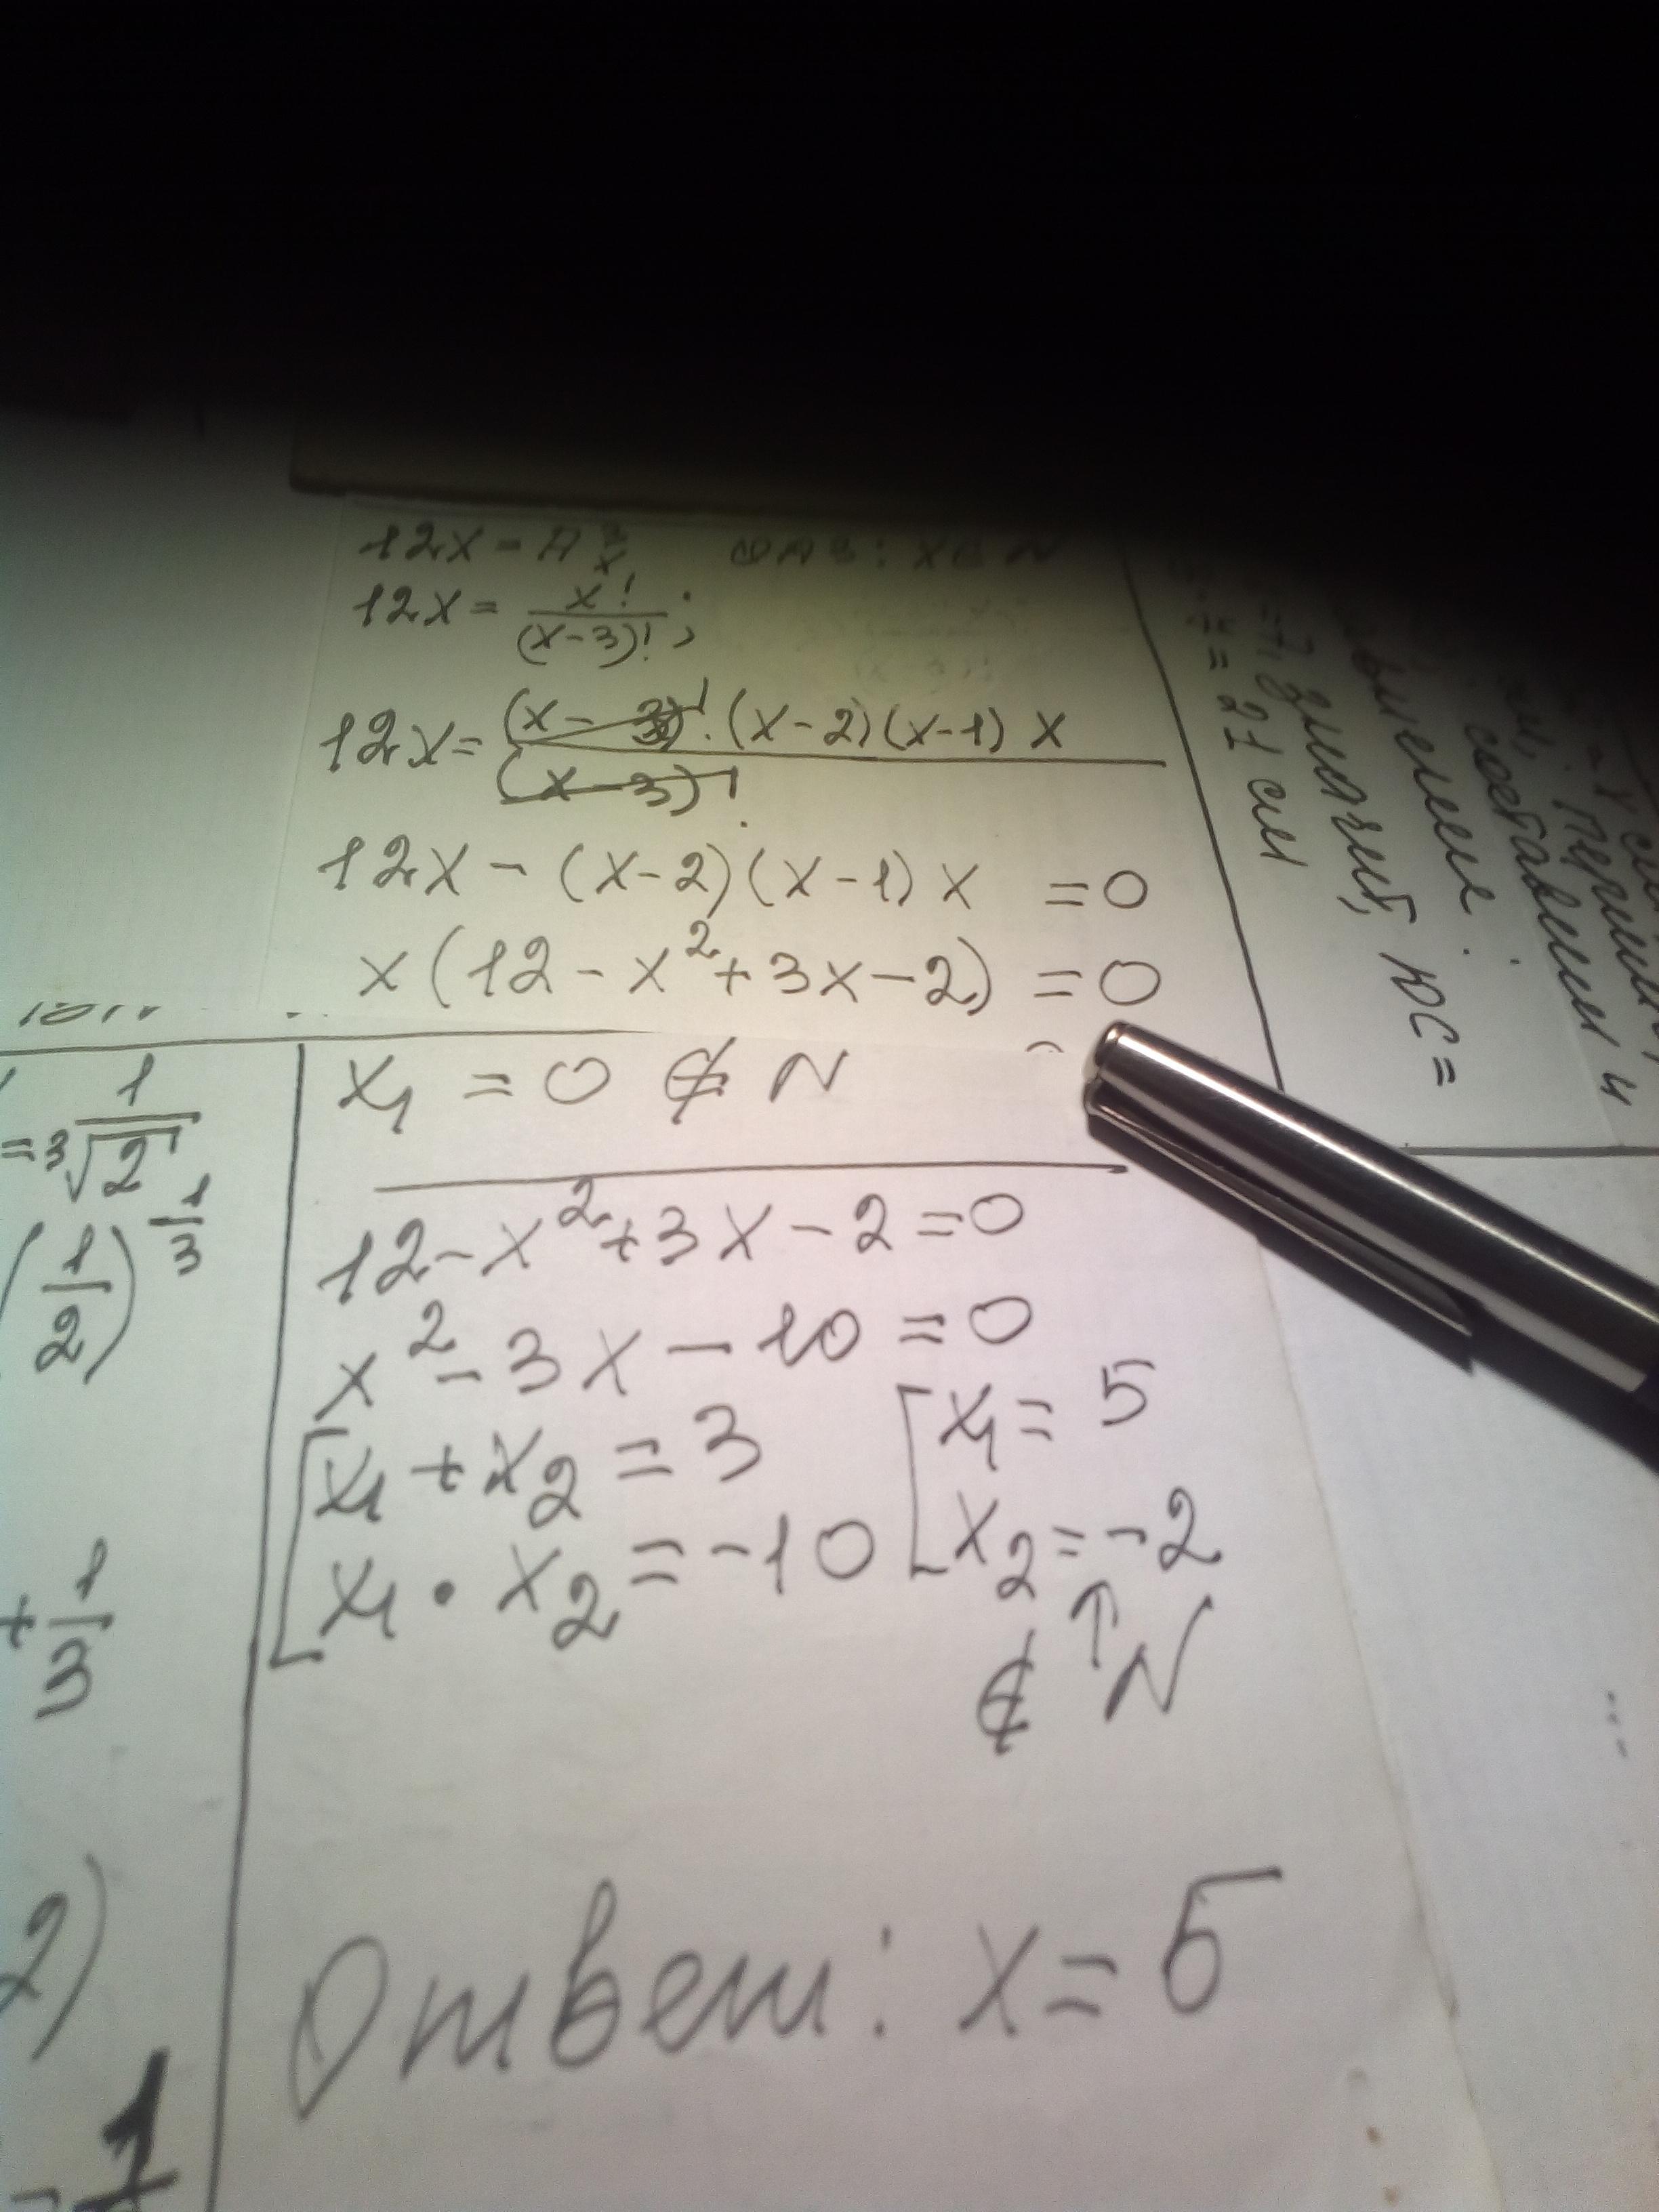 12x = A³ₓ ОДЗ: x ∈ N
12x = x! / (x-3)! ;
12x = (x-3)! · (x-2)(x-1) x / (x-3)!
12x - (x-2)(x-1) x = 0
x(12 - x² + 3x - 2) = 0
x₁ = 0 ∉ N
12 - x² + 3x - 2 = 0
x² - 3x - 10 = 0
[ x₁ + x₂ = 3
x₁ · x₂ = -10
[ x₁ = 5
x₂ = -2
↑
∉ N
Ответ: x = 5
= ³√ 1 / 2
( 1 / 2 ) ^ 1 / 3
+ 1 / 3
2)
1
= 21 см
значит, ЮС =
составим и